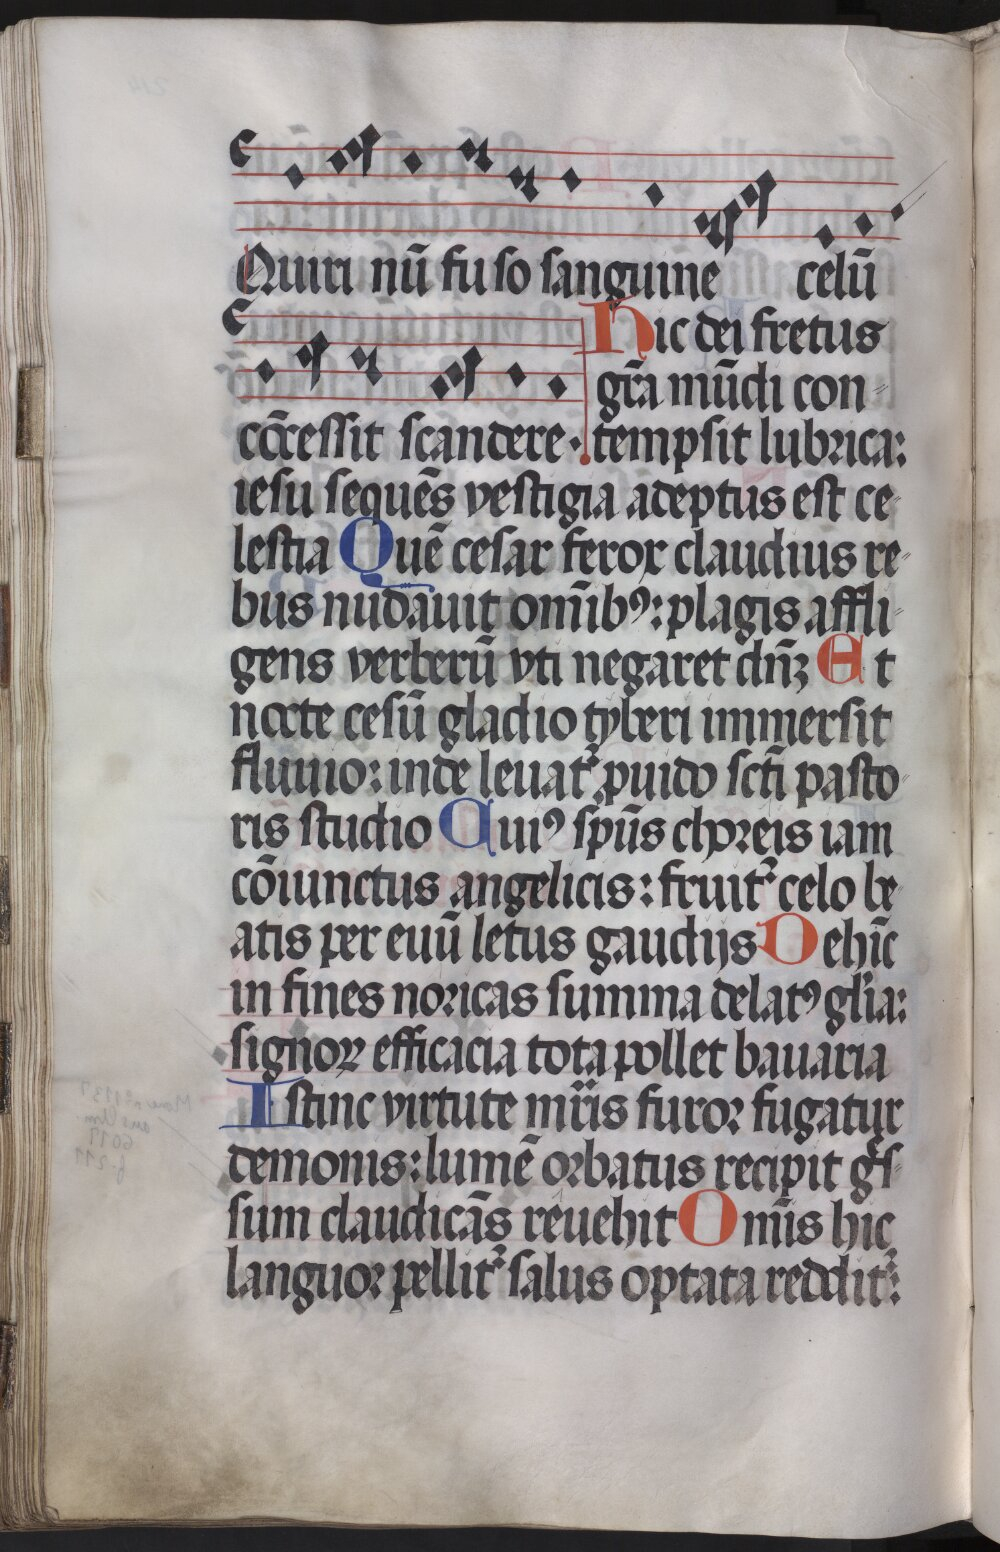 Quiri nū fuso sanguine celū
Hic dei fretus
gr̄a mūdi con⸗
cōcessit scandere· tempsit lubrica:
iesu sequēs vestigia adeptus est ce⸗
lestia Quē cesar ferox claudius re⸗
bus nudauit om̄ibꝰ: plagis affli⸗
gens verberū vti negaret dn̄ꝫ Et
nocte cesū gladio tyberi immersit
fluuio: inde leuat᷑ puido scti̅ pasto⸗
ris studio Cuiꝰ spūs choreis iam
cōiunctus angelicis: fruit᷑ celo be⸗
atis per euū letus gaudijs Dehīc
in fines noricas summa delatꝰ gl̄ia:
signoꝝ efficacia tota pollet bauaria
Istinc virtute mr̄is furor fugatur
demonis: lumē orbatus recipit gs̄⸗
sum claudicās reuehit Om̄is hic
languor pellit᷑ salus optata reddit᷑: